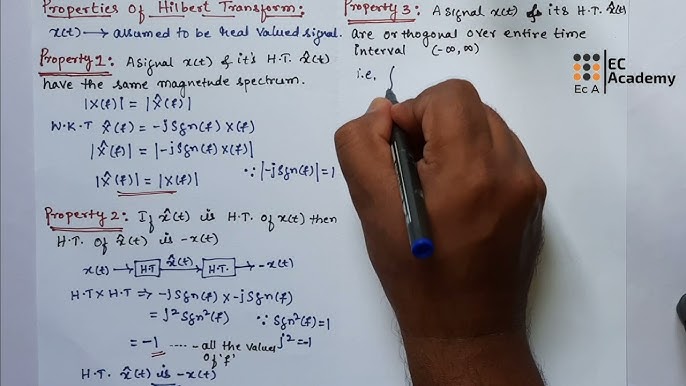 Properties of Hilbert Transform:
x(t) → assumed to be Real valued signal.
Property 1: A signal x(t) & it's H.T. x̂(t)
have the same magnetude spectrum.
|X(f)| = |X̂(f)|
W.K.T X̂(f) = -j Sgn(f) X(f)
|X̂(f)| = |-j Sgn(f) X(f)|
∵ |-j Sgn(f)| = 1
|X̂(f)| = |X(f)|
Property 2: If x̂(t) is H.T. of x(t) then
H.T. of x̂(t) is -x(t)
x(t) → H.T → x̂(t) → H.T. → -x(t)
H.T X H.T ⇒ -j Sgn(f) x -j Sgn(f)
= j² Sgn²(f) ∵ Sgn²(f) = 1
= -1 ---- - all the values j² = -1
of 'f'
H.T. x̂(t) is -x(t)
Property 3: A signal x(t) & it's H.T. x̂(t)
are orthogonal over entire time
interval (-∞, ∞)
i.e, ∫
EC
Academy
Ec A